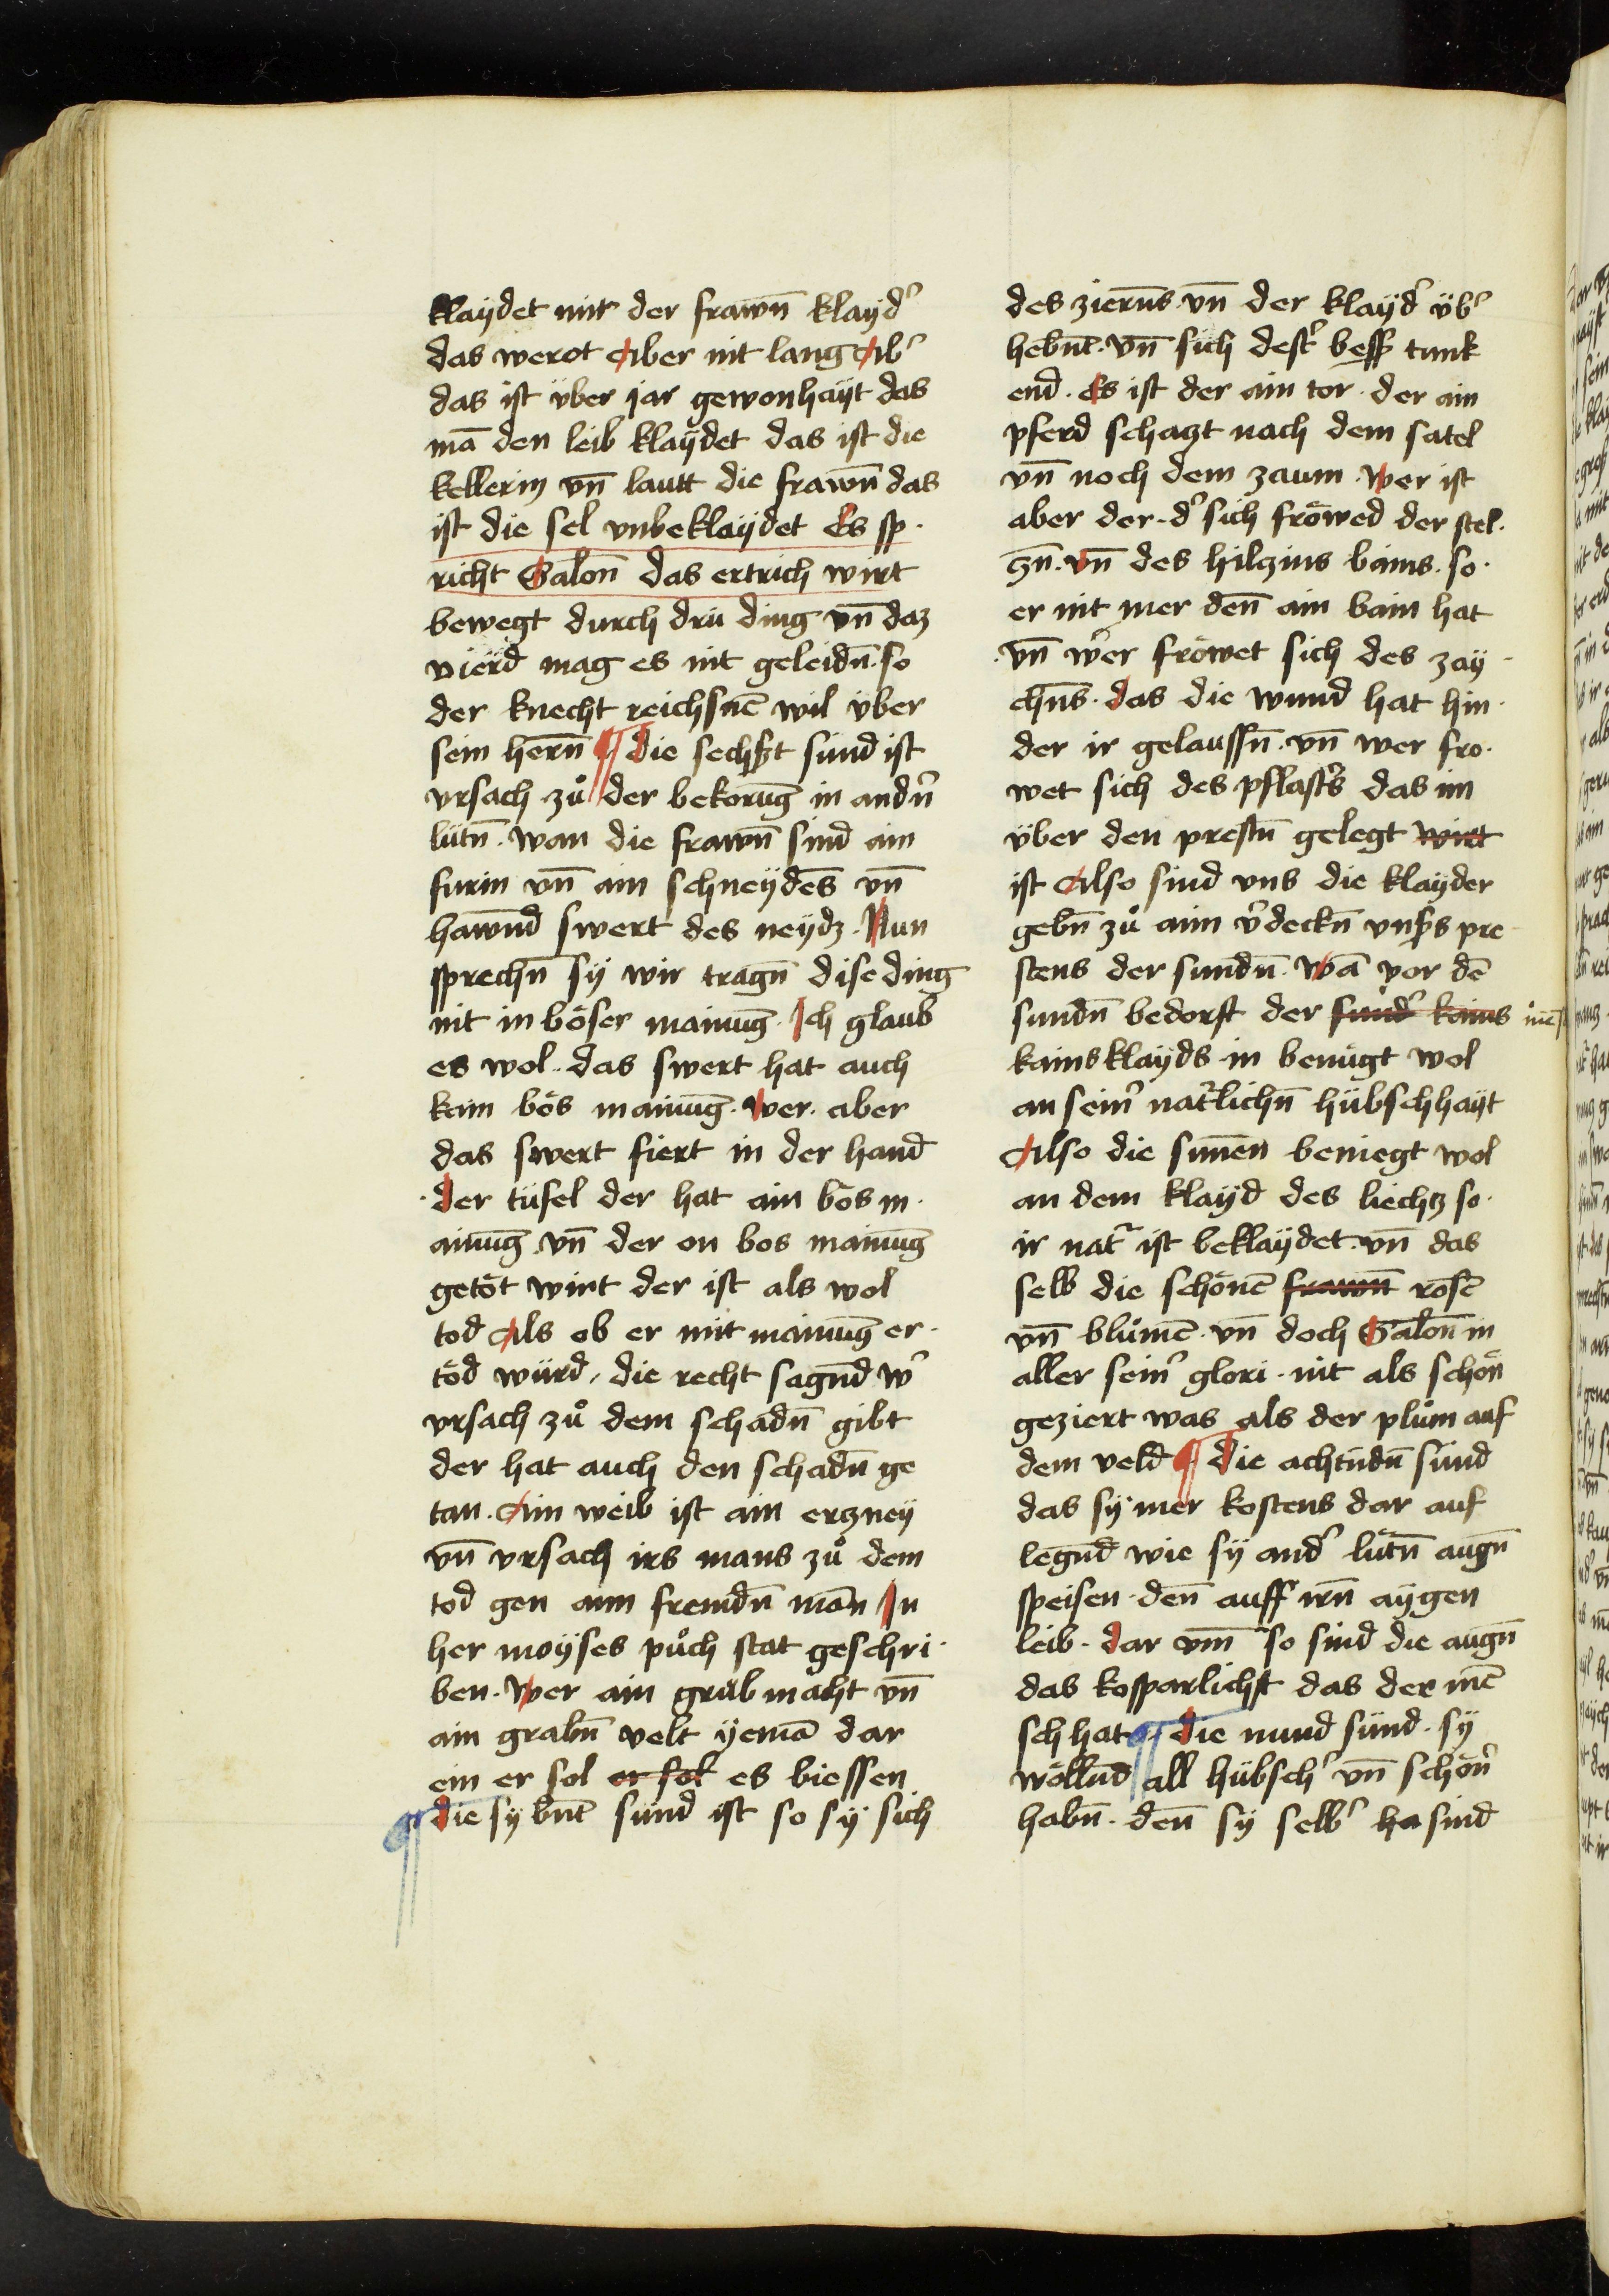 klaÿdet mit der frawn̄ klaÿd᾽
das werot Aber nit lang Ab᾽
das ist über jar gewonhaÿt das
mā den leib klaÿdet das ist die
kellerin vn̄ lautt die frawn̄ das
ist die sel vnbeklaÿdet Es sp·
richt Salon̄ das ertrich wirt
bewegt durch drü ding vn̄ daz
vierd mag es nit geleidn̄ · so
der knecht reichsnē wil über
sein hern̄ ¶ Die sechszt sünd ist
vrsach zů der bekorūg in andn᾽
lütn̄ · wan die frawn̄ sind ain
furin vn̄ ain schneÿdēs vn̄
hawnd̄ swert des neÿdz · Nun
sprechn̄ sÿ wir tragn̄ dise ding
nit in böser mainūg · Ich glaub
es wol · das swert hat auch
kain bös mainūg · wer · aber
das swert fiert in der hand
· der tüfel der hat ain bös m·
ainūg vn̄ der on bos mainūg
getöt wirt der ist als wol
tod Als ob er mit mainūg er·
töd würd · die recht sagnd̄ w᾽
vrsach zů dem schadn̄ gibt
der hat auch den schadn̄ ge
tan · Ain weib ist ain erczneÿ
vn̄ vrsach irs mans zů dem
tod gen aim fremdn̄ man In
her moÿses půch stat geschri·
ben · Wer ain grůb macht vn̄
ain grabn̄ velt ÿemā dar
ein er sol er sol es biessen
¶ die sÿbnt̄ sünd ist so sÿ sich
des zierns̄ vn̄ der klaÿd᾽ üb᾽
hebnt̄ · vn̄ sich dest᾽ bess᾽ tunk
end · Es ist der ain tor · der ain
pferd schaczt nach dem satel
vn̄ noch dem zaum · Wer ist
aber der · d᾽ sich fröwed der stel·
czn̄ · vn̄ des hilczins bains · so·
er nit mer den̄ ain bain hat
· vn̄ wer fröwet sich des zaÿ·
chns̄ · das die wund hat hin·
der ir gelaussn̄ · vn̄ wer frö·
wet sich des pflast᾽s das im
über den prestn̄ gelegt wirt
ist Also sind vns die klaÿder
gebn̄ zů aim v᾽deckn̄ vns᾽s pre
stens der sundn̄ · Wā vor dē
sundn̄ bedorft der sünd᾽ kains mēs
kains klaÿds · in benügt wol
an sein᾽ nat᾽lichn̄ hübschhaÿt
Also die sunnen beniegt wol
an dem klaÿd des liechtz so·
ir nat᾽ ist beklaÿdet · vn̄ das
selb die schönē frawn̄ rosē
vn̄ blůmē · vn̄ doch Salon̄ in
aller sein᾽ glori · nit als schön
geziert was als der plům auf
dem veld ¶ Die achtündn̄ sünd
das sÿ mer kostens dar auf
legnd̄ wie sÿ and᾽ lütn̄ augn̄
speisen · den̄ auff irn̄ aÿgen
leib · dar vm̄ so sind die augn̄
das kosparlichst das der mē
sch hat ¶ Die nünd sünd · sÿ
wöllnd̄ all hübsch᾽ vn̄ schön᾽
habn̄ · den̄ sÿ selb᾽ ha sind